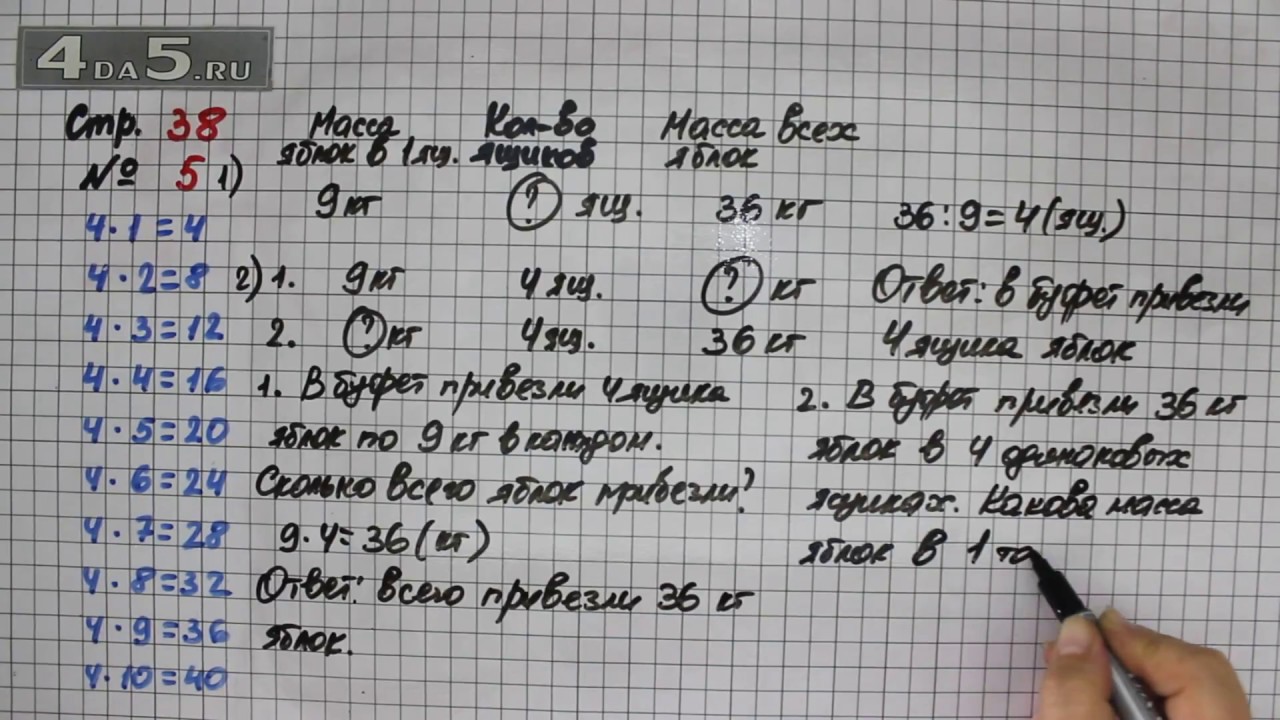 4DA5.RU
Стр. 38
№ 5
4·1=4
4·2=8
4·3=12
4·4=16
4·5=20
4·6=24
4·7=28
4·8=32
4·9=36
4·10=40
1) Масса Кол-во Масса всех
яблок в 1 ящ. ящиков яблок
9 кг ? ящ. 36 кг 36:9=4(ящ.)
2) 1. 9 кг 4 ящ. ? кг
2. ? кг 4 ящ. 36 кг
Ответ: в буфет привезли
4 ящика яблок
1. В буфет привезли 4 ящика
яблок по 9 кг в каждом.
Сколько всего яблок привезли?
9·4=36(кг)
Ответ: всего привезли 36 кг
яблок.
2. В буфет привезли 36 кг
яблок в 4 одинаковых
ящиках. Какова масса
яблок в 1 та